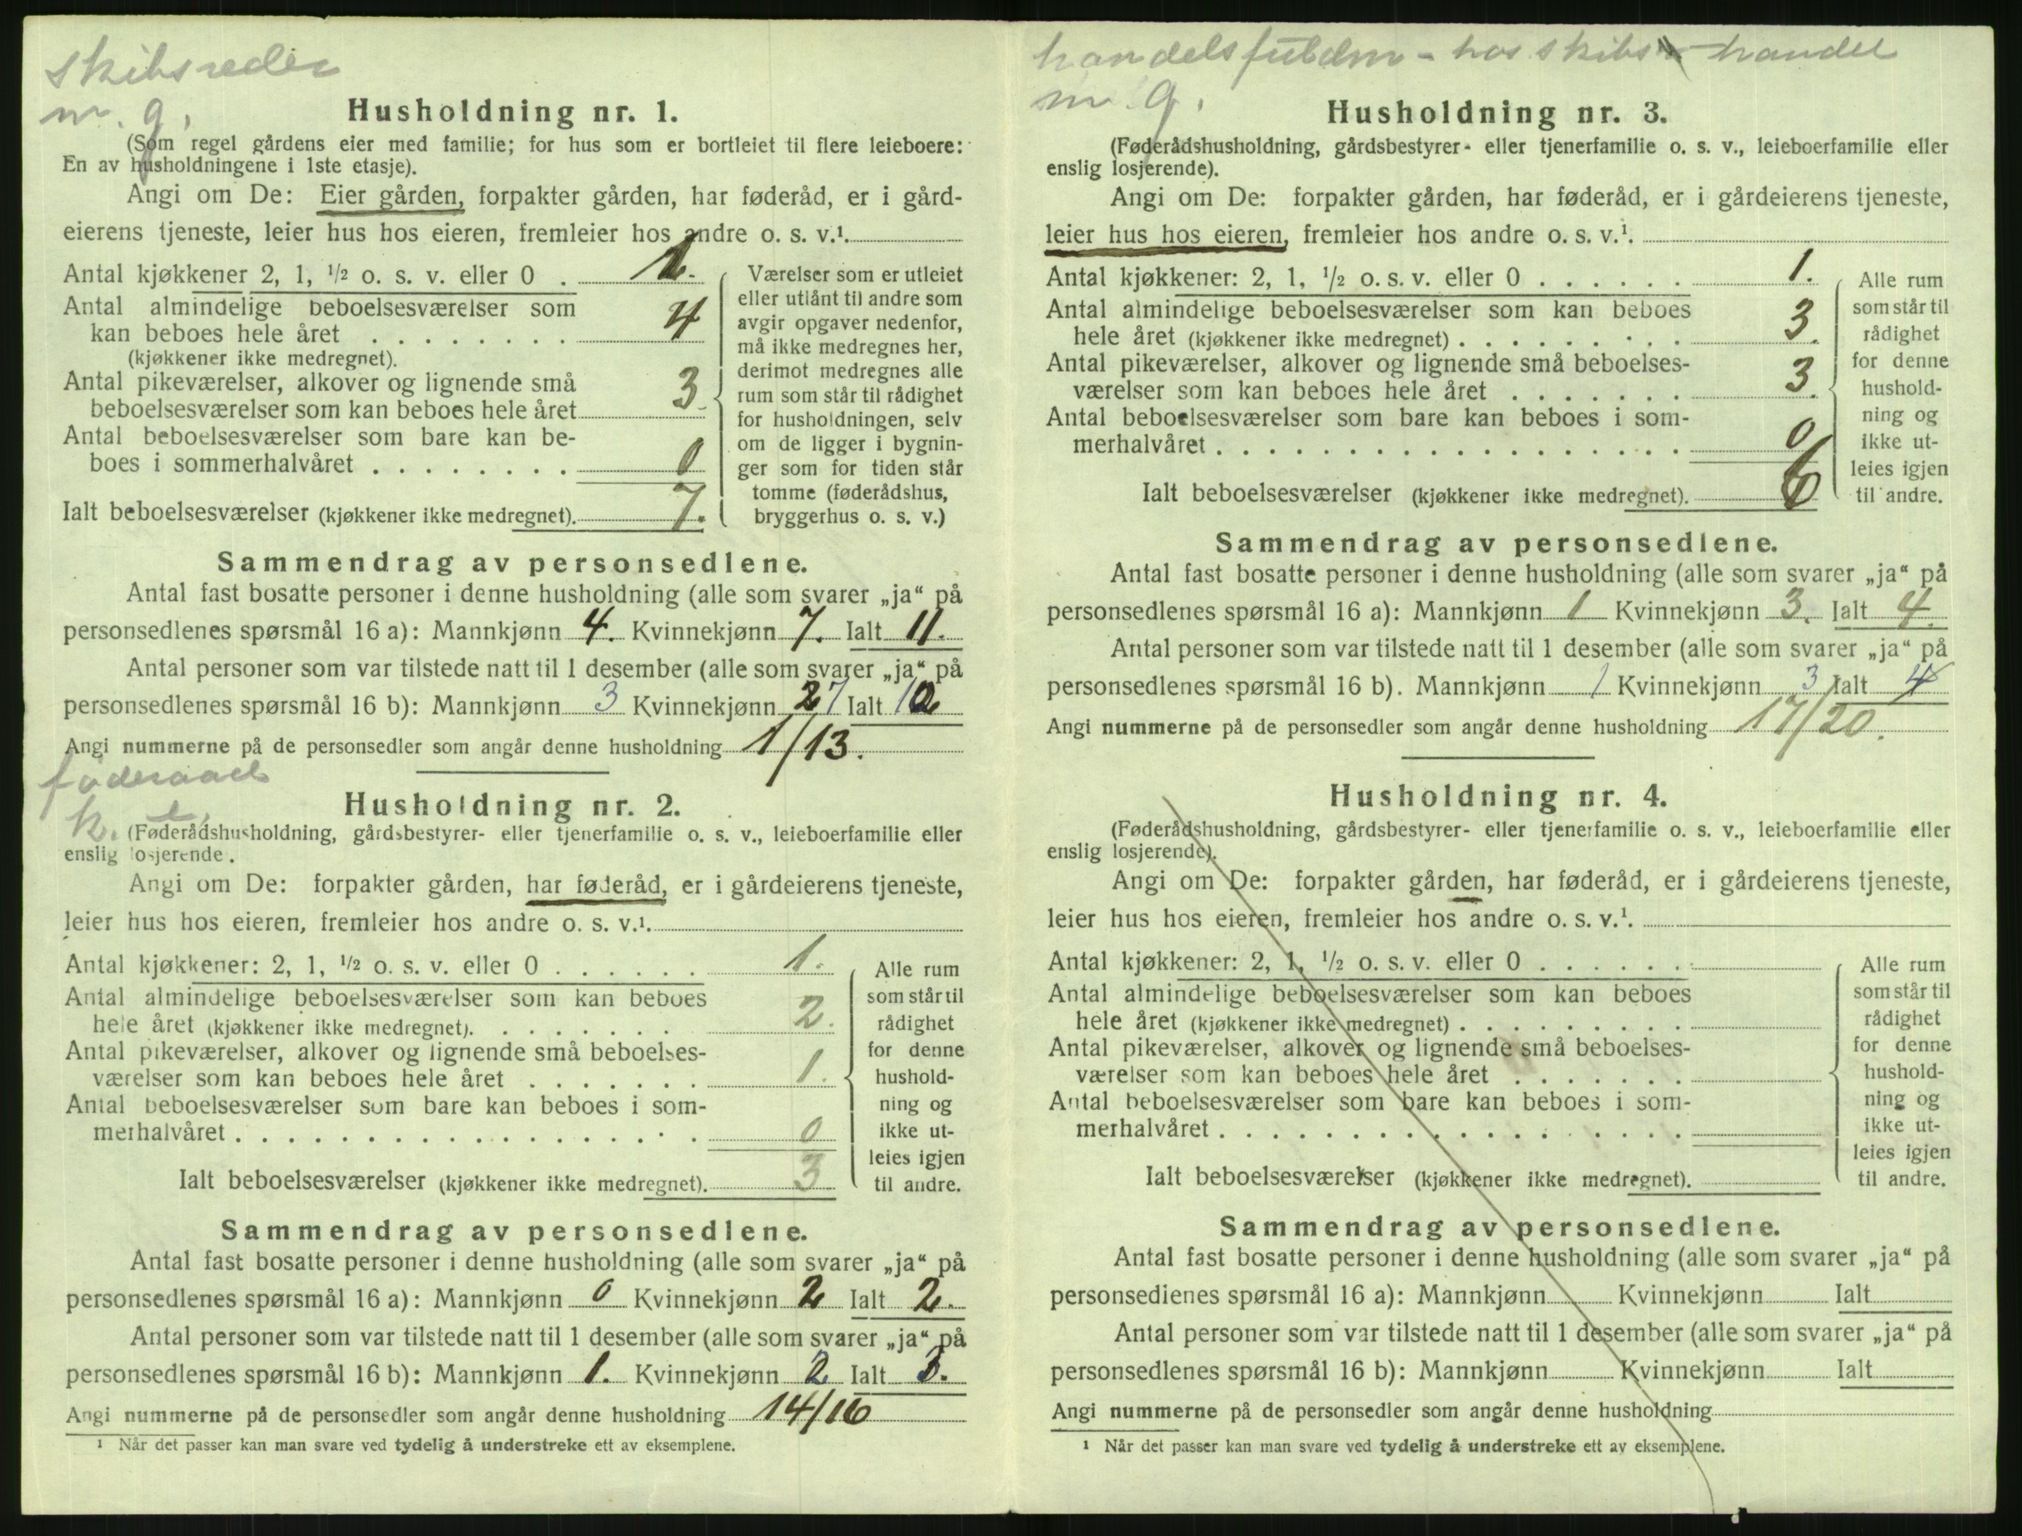 skibsreder
m. g.
Husholdning nr. 1.
(Som regel gårdens eier med familie; for hus som er bortleiet til flere leieboere:
En av husholdningene i 1ste etasje).
Angi om De: Eier gården, forpakter gården, har føderåd, er i gård-
eierens tjeneste, leier hus hos eieren, fremleier hos andre o. s. v.¹.
Antal kjøkkener 2, 1, ½ o. s. v. eller 0 . 1.
Antal almindelige beboelsesværelser som
kan beboes hele året . . . . . . . . 4
(kjøkkener ikke medregnet).
Antal pikeværelser, alkover og lignende små
beboelsesværelser som kan beboes hele året 3
Antal beboelsesværelser som bare kan be-
boes i sommerhalvåret . . . . . . . . 0
Ialt beboelsesværelser (kjøkkener ikke medregnet). 7.
Værelser som er utleiet
eller utlånt til andre som
avgir opgaver nedenfor,
må ikke medregnes her,
derimot medregnes alle
rum som står til rådighet
for husholdningen, selv
om de ligger i bygnin-
ger som for tiden står
tomme (føderådshus,
bryggerhus o. s. v.)
Sammendrag av personsedlene.
Antal fast bosatte personer i denne husholdning (alle som svarer „ja“ på
personsedlenes spørsmål 16 a): Mannkjønn 4. Kvinnekjønn 7. Ialt 11.
Antal personer som var tilstede natt til 1 desember (alle som svarer „ja“ på
personsedlenes spørsmål 16 b): Mannkjønn 3 Kvinnekjønn 7 Ialt 10
Angi nummerne på de personsedler som angår denne husholdning 1/13.
føderaad
k. e.
Husholdning nr. 2.
(Føderådshusholdning, gårdsbestyrer- eller tjenerfamilie o. s. v., leieboerfamilie eller
enslig losjerende.
Angi om De: forpakter gården, har føderåd, er i gårdeierens tjeneste,
leier hus hos eieren, fremleier hos andre o. s. v.¹.
Antal kjøkkener: 2, 1, ½ o. s. v. eller 0 . . . . . . 1.
Antal almindelige beboelsesværelser som kan beboes
hele året (kjøkkener ikke medregnet). . . . . . . . 2.
Antal pikeværelser, alkover og lignende små beboelses-
værelser som kan beboes hele året . . . . . . . 1.
Antal beboelsesværelser som bare kan beboes i som-
merhalvåret . . . . . . . . . . . . . . . . . . 0
Ialt beboelsesværelser (kjøkkener ikke medregnet). 3
Alle rum
som står til
rådighet
for denne
hushold-
ning og
ikke ut-
leies igjen
til andre.
Sammendrag av personsedlene.
Antal fast bosatte personer i denne husholdning (alle som svarer „ja“ på
personsedlenes spørsmål 16 a): Mannkjønn 0 Kvinnekjønn 2 Ialt 2.
Antal personer som var tilstede natt til 1 desember (alle som svarer „ja“ på
personsedlenes spørsmål 16 b): Mannkjønn 1. Kvinnekjønn 2 Ialt 3.
Angi nummerne på de personsedler som angår denne husholdning 14/16
¹ Når det passer kan man svare ved tydelig å understreke ett av eksemplene.
handelsfuldm - hos skibs - handel
m g.
Husholdning nr. 3.
(Føderådshusholdning, gårdsbestyrer- eller tjenerfamilie o. s. v., leieboerfamilie eller
enslig losjerende).
Angi om De: forpakter gården, har føderåd, er i gårdeierens tjeneste,
leier hus hos eieren, fremleier hos andre o. s. v.¹.
Antal kjøkkener: 2, 1, ½ o. s. v. eller 0 . . . . . . 1.
Antal almindelige beboelsesværelser som kan beboes
hele året (kjøkkener ikke medregnet) . . . . . . . . . 3.
Antal pikeværelser, alkover og lignende små beboelses-
værelser som kan beboes hele året . . . . . . . 3.
Antal beboelsesværelser som bare kan beboes i som-
merhalvåret . . . . . . . . . . . . . . . . . . 0
Ialt beboelsesværelser (kjøkkener ikke medregnet). 6
Alle rum
som står til
rådighet
for denne
hushold-
ning og
ikke ut-
leies igjen
til andre.
Sammendrag av personsedlene.
Antal fast bosatte personer i denne husholdning (alle som svarer „ja“ på
personsedlenes spørsmål 16 a): Mannkjønn 1 Kvinnekjønn 3. Ialt 4.
Antal personer som var tilstede natt til 1 desember (alle som svarer „ja“ på
personsedlenes spørsmål 16 b). Mannkjønn 1 Kvinnekjønn 3 Ialt 4
Angi nummerne på de personsedler som angår denne husholdning 17/20.
Husholdning nr. 4.
(Føderådshusholdning, gårdsbestyrer- eller tjenerfamilie o. s. v., leieboerfamilie eller
enslig losjerende).
Angi om De: forpakter gården, har føderåd, er i gårdeierens tjeneste,
leier hus hos eieren, fremleier hos andre o. s. v.¹.
Antal kjøkkener: 2, 1, ½ o. s. v. eller 0 . . . . . .
Antal almindelige beboelsesværelser som kan beboes
hele året (kjøkkener ikke medregnet) . . . . . . . . .
Antal pikeværelser, alkover og lignende små beboelses-
værelser som kan beboes hele året . . . . . . .
Antal beboelsesværelser som bare kan beboes i som-
merhalvåret . . . . . . . . . . . . . . . . . .
Ialt beboelsesværelser (kjøkkener ikke medregnet).
Alle rum
som står til
rådighet
for denne
hushold-
ning og
ikke ut-
leies igjen
til andre.
Sammendrag av personsedlene.
Antal fast bosatte personer i denne husholdning (alle som svarer „ja“ på
personsedlenes spørsmål 16 a): Mannkjønn Kvinnekjønn Ialt
Antal personer som var tilstede natt til 1 desember (alle som svarer „ja“ på
personsedlenes spørsmål 16 b): Mannkjønn Kvinnekjønn Ialt
Angi nummerne på de personsedler som angår denne husholdning
¹ Når det passer kan man svare ved tydelig å understreke ett av eksemplene.